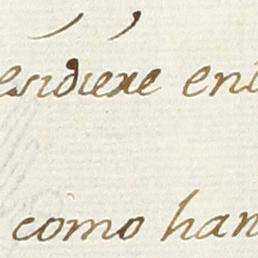 esidiere en
como han